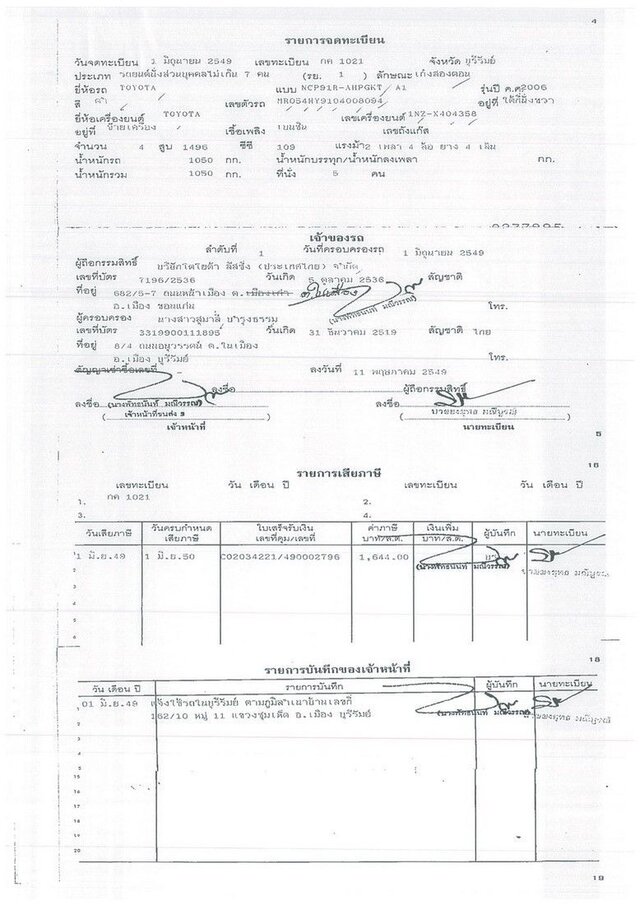 4
รายการจดทะเบียน
วันจดทะเบียน 1 มิถุนายน 2549 เลขทะเบียน กค 1021 จังหวัด บุรีรัมย์
ประเภท รถยนต์นั่งส่วนบุคคลไม่เกิน 7 คน (รย. 1 ) ลักษณะ เก๋งสองตอน
ยี่ห้อรถ TOYOTA แบบ NCP91R-AHPGKT A1 รุ่นปี ค.ศ2006
สี เลขตัวรถ MR054HY9104008094 อยู่ที่ ใต้ที่นั่งขวา
ยี่ห้อเครื่องยนต์ TOYOTA เลขเครื่องยนต์ 1NZ-X404358
อยู่ที่ ข้ายเครื่อง เชื้อเพลิง เบนซิน เลขถังแก๊ส
จำนวน 4 สูบ 1496 ซีซี 109 แรงม้า2 เพลา 4 ล้อ ยาง 4 เส้น
น้ำหนักรถ 1050 กก. น้ำหนักบรรทุก/น้ำหนักลงเพลา กก.
น้ำหนักรวม 1050 กก. ที่นั่ง 5 คน
เจ้าของรถ
ลำดับที่ 1 วันที่ครอบครองรถ 1 มิถุนายน 2549
ผู้ถือกรรมสิทธิ์ บริษัทโตโยต้า ลีสซิ่ง (ประเทศไทย) จำกัด
เลขที่บัตร 7196/2536 วันเกิด 5 ตุลาคม 2536 สัญชาติ
ที่อยู่ 682/5-7 ถนนหน้าเมือง ต.เมืองเก่า ต.ในเมือง
(นางหัทยนันท์ มณีวรรณ)
อ.เมือง ขอนแก่น โทร.
ผู้ครอบครอง นางสาวสุมาลี บำรุงธรรม
เลขที่บัตร 3319900111895 วันเกิด 31 ธันวาคม 2519 สัญชาติ ไทย
ที่อยู่ 8/4 ถนนอนุวรรตน์ ต.ในเมือง
อ.เมือง บุรีรัมย์ โทร.
สัญญาเช่าซื้อเลขที่ ลงวันที่ 11 พฤษภาคม 2549
ลงชื่อ ผู้ถือกรรมสิทธิ์
ลงชื่อ (นางหัทยนันท์ มณีวรรณ) ลงชื่อ
( เจ้าหน้าที่ขนส่ง 3 ) ( )
เจ้าหน้าที่ นายทะเบียน
5
16
รายการเสียภาษี
เลขทะเบียน วัน เดือน ปี เลขทะเบียน วัน เดือน ปี
1. กค 1021 2.
3. 4.
วันเสียภาษี วันครบกำหนดเสียภาษี ใบเสร็จรับเงิน เลขที่คุม/เลขที่ ค่าภาษี บาท/ส.ต. เงินเพิ่ม บาท/ส.ต. ผู้บันทึก นายทะเบียน
1 มิ.ย.49 1 มิ.ย.50 C02034221/490002796 1,644.00
(นางหัทยนันท์ มณีวรรณ)
2
3
4
5
6
18
รายการบันทึกของเจ้าหน้าที่
วัน เดือน ปี รายการบันทึก ผู้บันทึก นายทะเบียน
01 มิ.ย.49 แจ้งใช้รถในบุรีรัมย์ ตามภูมิลำเนาบ้านเลขที่
162/10 หมู่ 11 แขวงชุมเห็ด อ.เมือง บุรีรัมย์ (นางหัทยนันท์ มณีวรรณ)
15
16
17
18
19
20
19